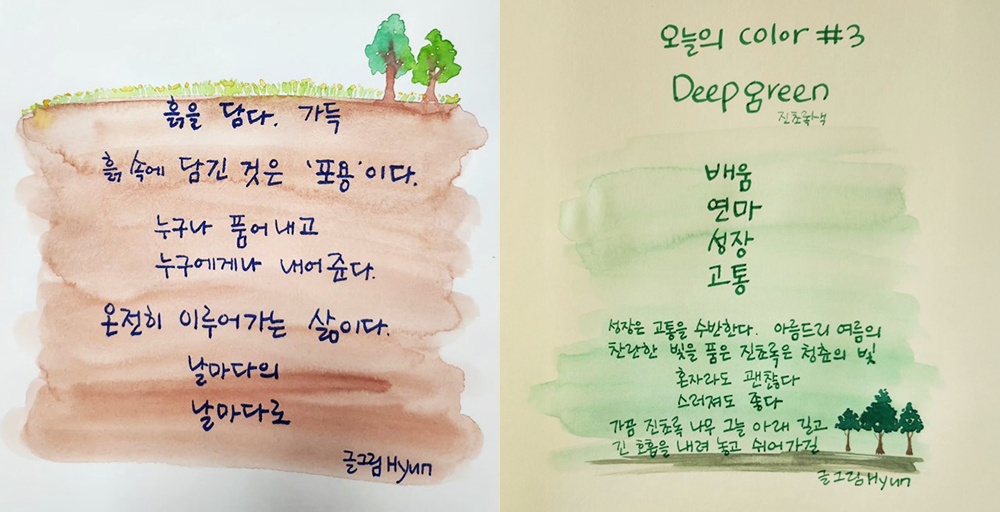 흙을 담다. 가득
흙 속에 담긴 것은 '포용'이다.
누구나 품어내고
누구에게나 내어준다.
온전히 이루어가는 삶이다.
날마다의
날마다로
글그림 Hyun
오늘의 color #3
Deep green
진초록색
배움
연마
성장
고통
성장은 고통을 수반한다. 아름드리 여름의
찬란한 빛을 품은 진초록은 청춘의 빛
혼자라도 괜찮다
스러져도 좋다
가끔 진초록 나무 그늘 아래 길고
긴 호흡을 내려 놓고 쉬어가길
글그림 Hyun